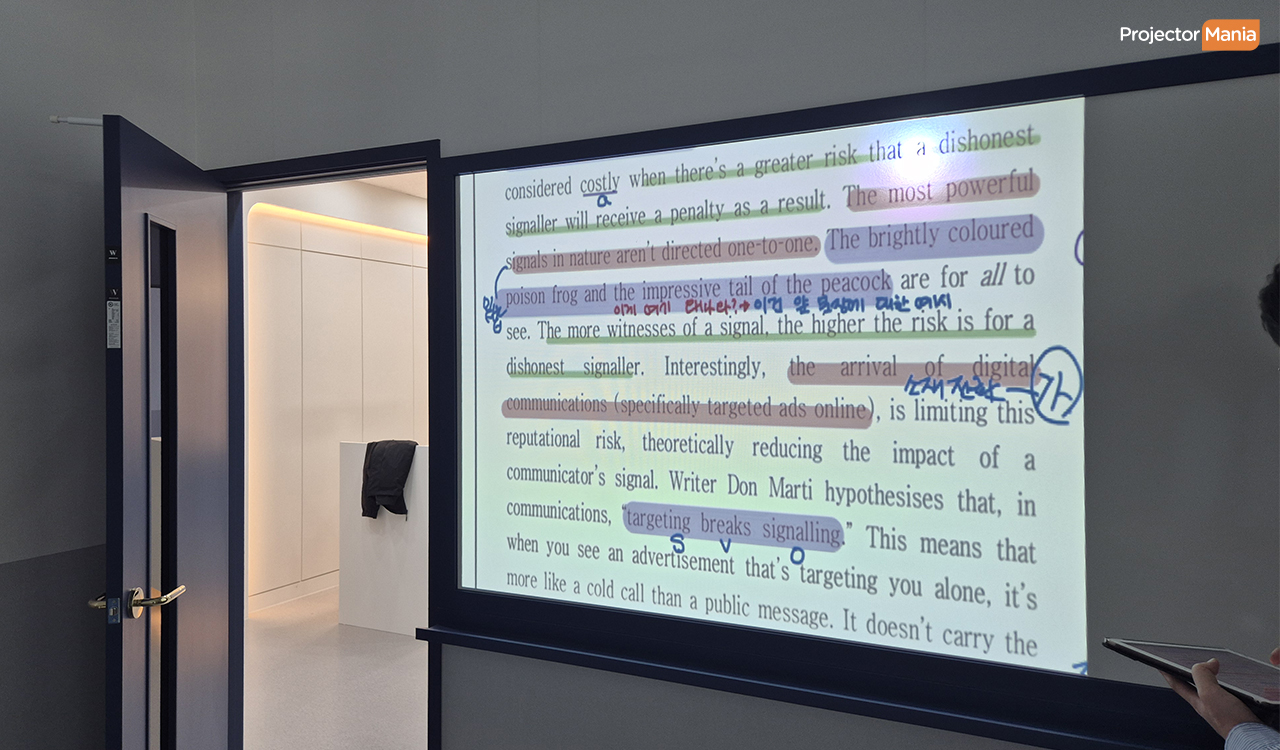 Projector Mania
considered costly when there's a greater risk that a dishonest
a
signaller will receive a penalty as a result. The most powerful
signals in nature aren't directed one-to-one. The brightly coloured
poison frog and the impressive tail of the peacock are for all to
이게 여기 왜 나와? → 이건 앞 문장에 대한 예시
see. The more witnesses of a signal, the higher the risk is for a
dishonest signaller. Interestingly, the arrival of digital
가
communications (specifically targeted ads online), is limiting this
reputational risk, theoretically reducing the impact of a
communicator's signal. Writer Don Marti hypothesises that, in
communications, "targeting breaks signalling." This means that
S V O
when you see an advertisement that's targeting you alone, it's
more like a cold call than a public message. It doesn't carry the
W